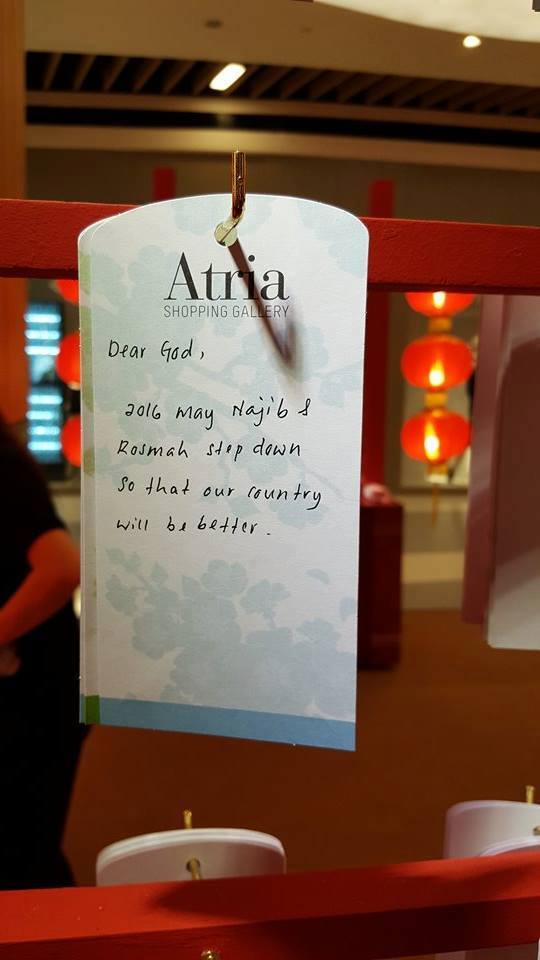 Atria
SHOPPING GALLERY
Dear God,
2016 may Najib &
Rosmah step down
so that our country
will be better.